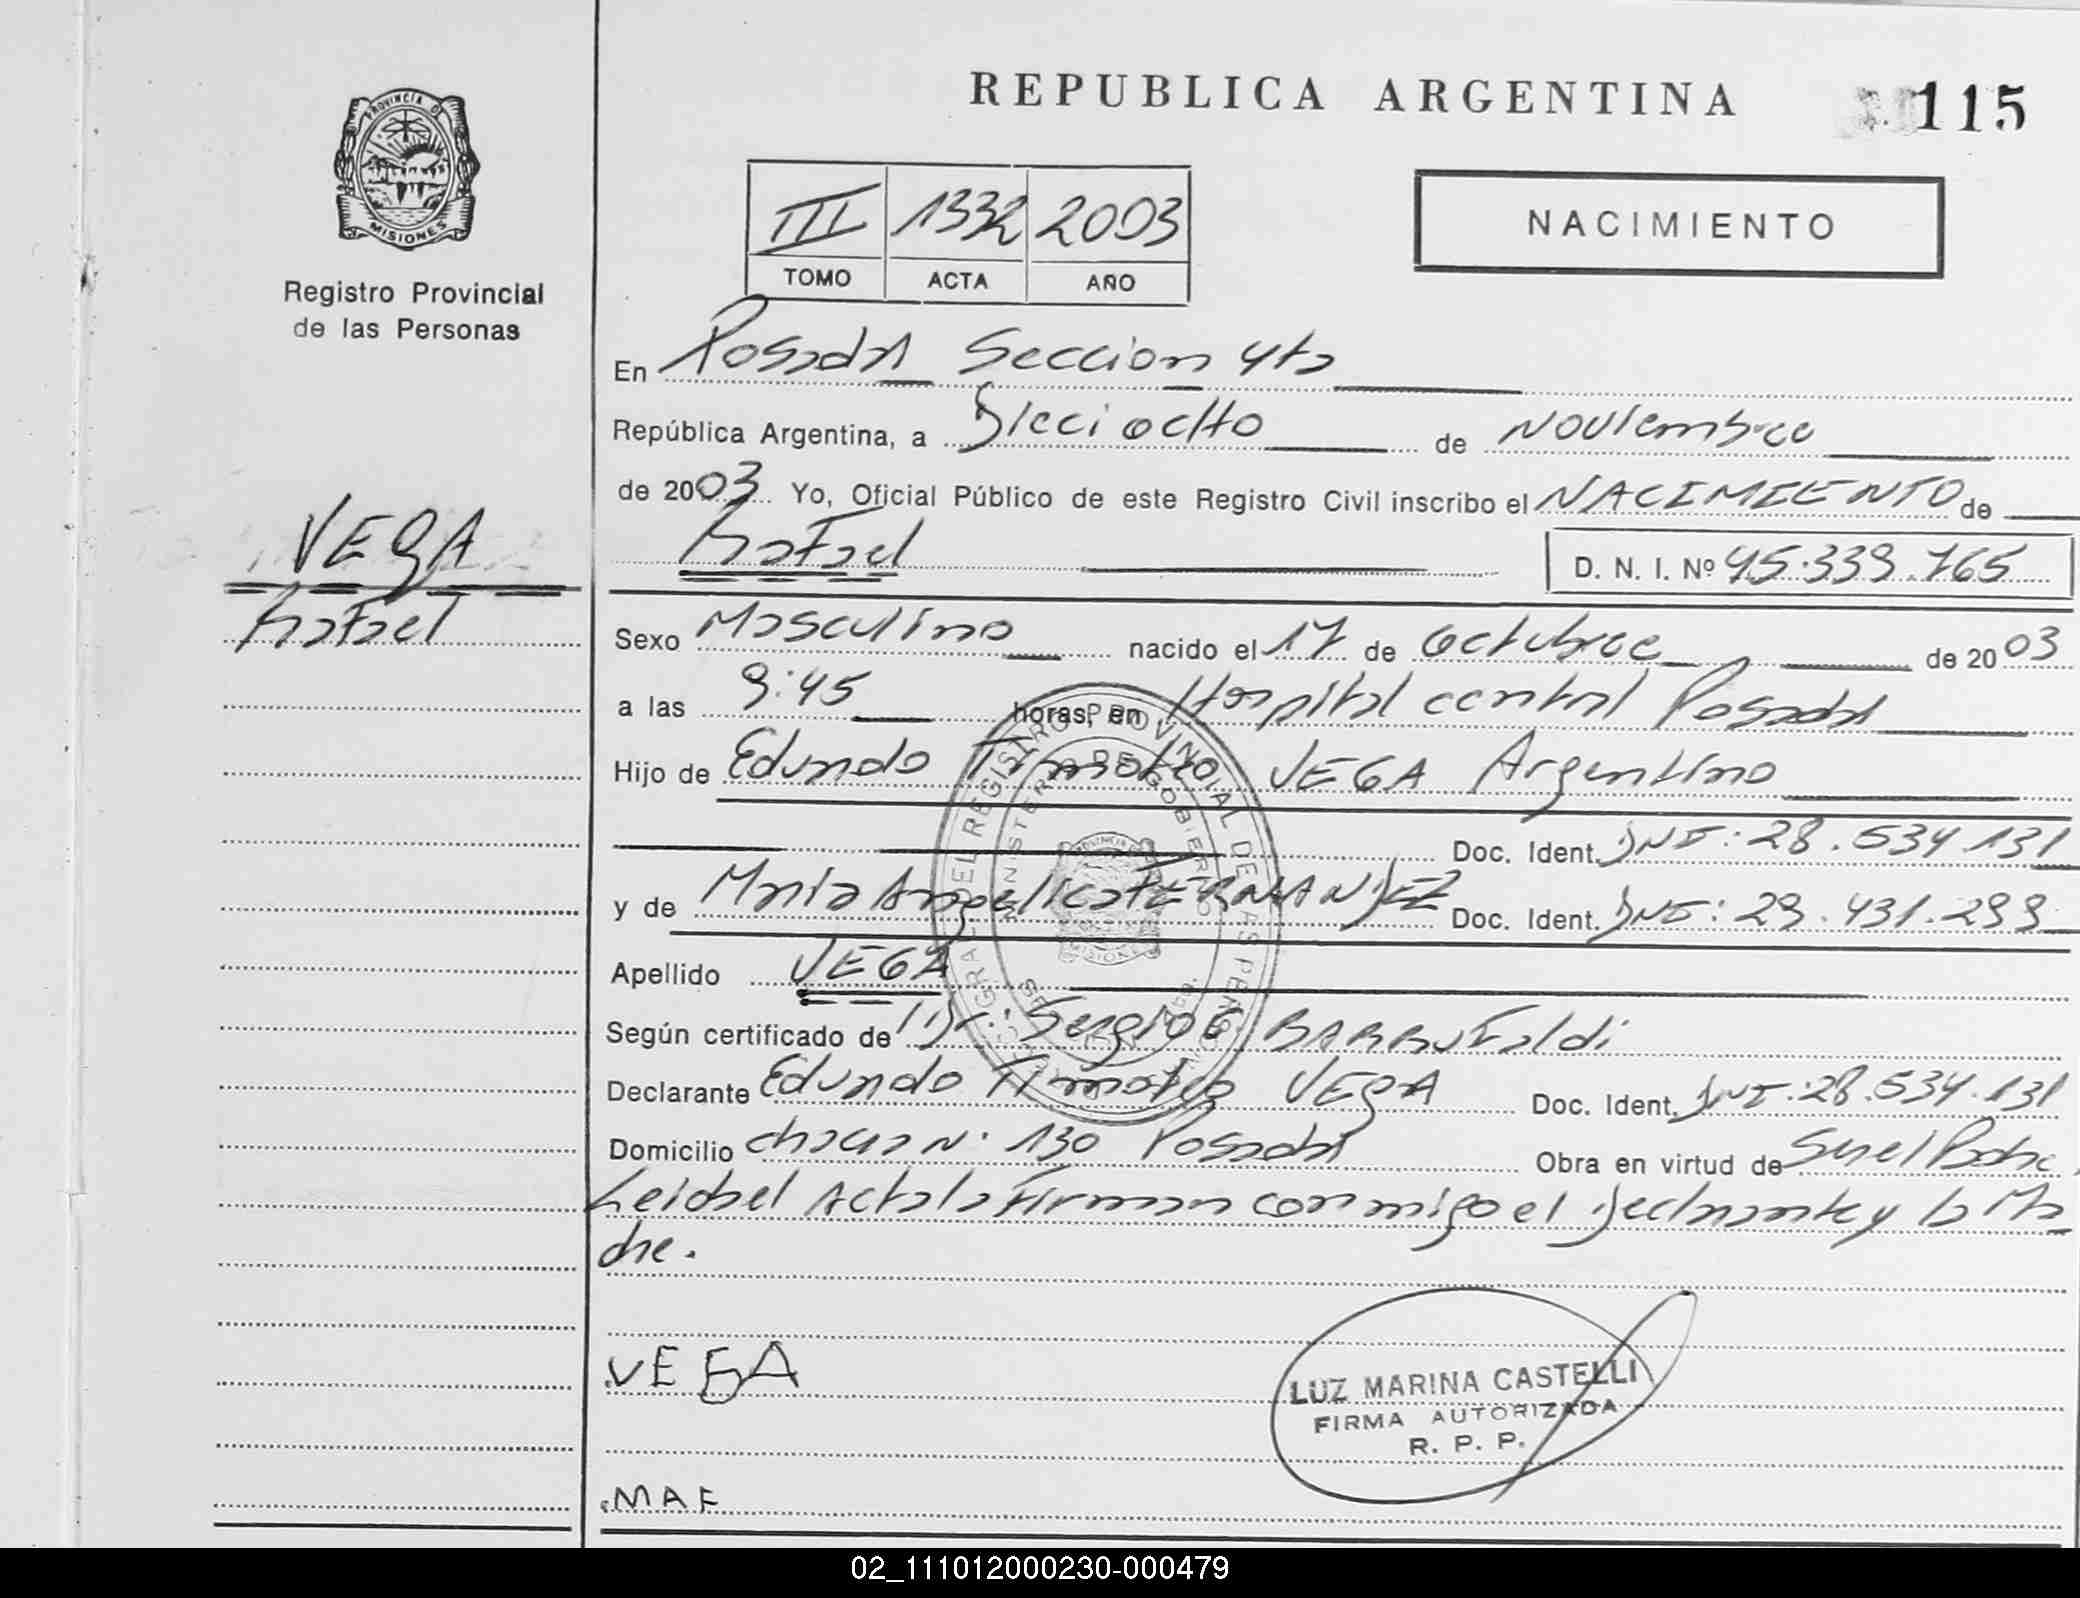 PROVINCIA DE
MISIONES
Registro Provincial
de las Personas
VEGA
Rafael
REPUBLICA ARGENTINA
115
III 1332 2003
TOMO ACTA AÑO
NACIMIENTO
En Posadas Seccion 4ta
República Argentina, a Dieciocho de Noviembre
de 2003 Yo, Oficial Público de este Registro Civil inscribo el NACIMIENTO de
Rafael D. N. I. Nº 45.339.765
Sexo Masculino nacido el 17 de Octubre de 2003
a las 9:45 horas, en Hospital central Posadas
Hijo de Edundo Timoteo VEGA Argentino
Doc. Ident. DNI: 28.534.131
y de Maria Angelica FERNANDEZ Doc. Ident. DNI: 29.431.299
Apellido VEGA
Según certificado de Dr. Sergio E. BARRUFaldi
Declarante Edundo Timoteo VEGA Doc. Ident. DNI: 28.534.131
Domicilio chacra N. 130 Posadas Obra en virtud de Ser el Padre
Leida el Acta la Firman conmigo el Declarante y la Ma
dre.
VEGA
LUZ MARINA CASTELLI
FIRMA AUTORIZADA
R. P. P.
MAF
02_111012000230-000479